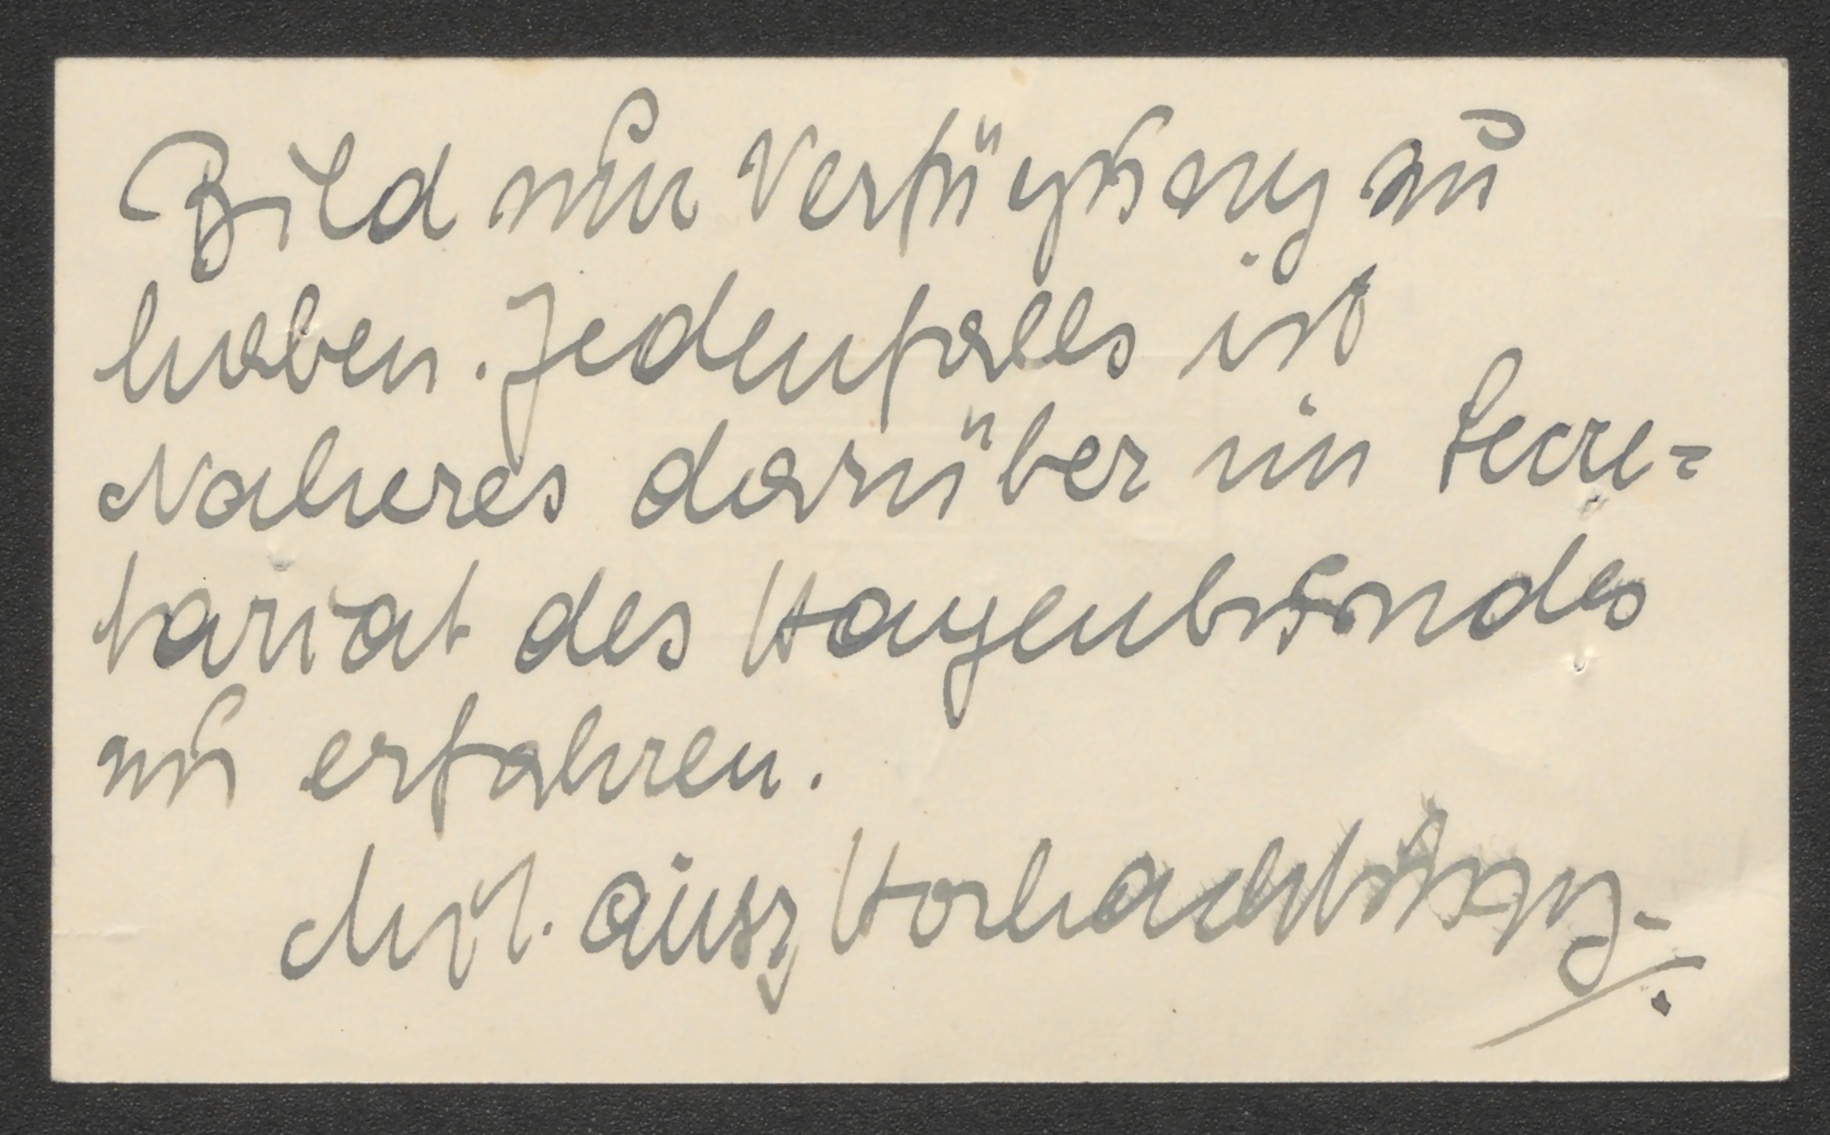 Bild zur Verfügung zu
haben. Jedenfalls ist
Naheres darüber im Secre=
tariat des Hagenbundes
zu erfahren.
Mit ausz Hochachtung.